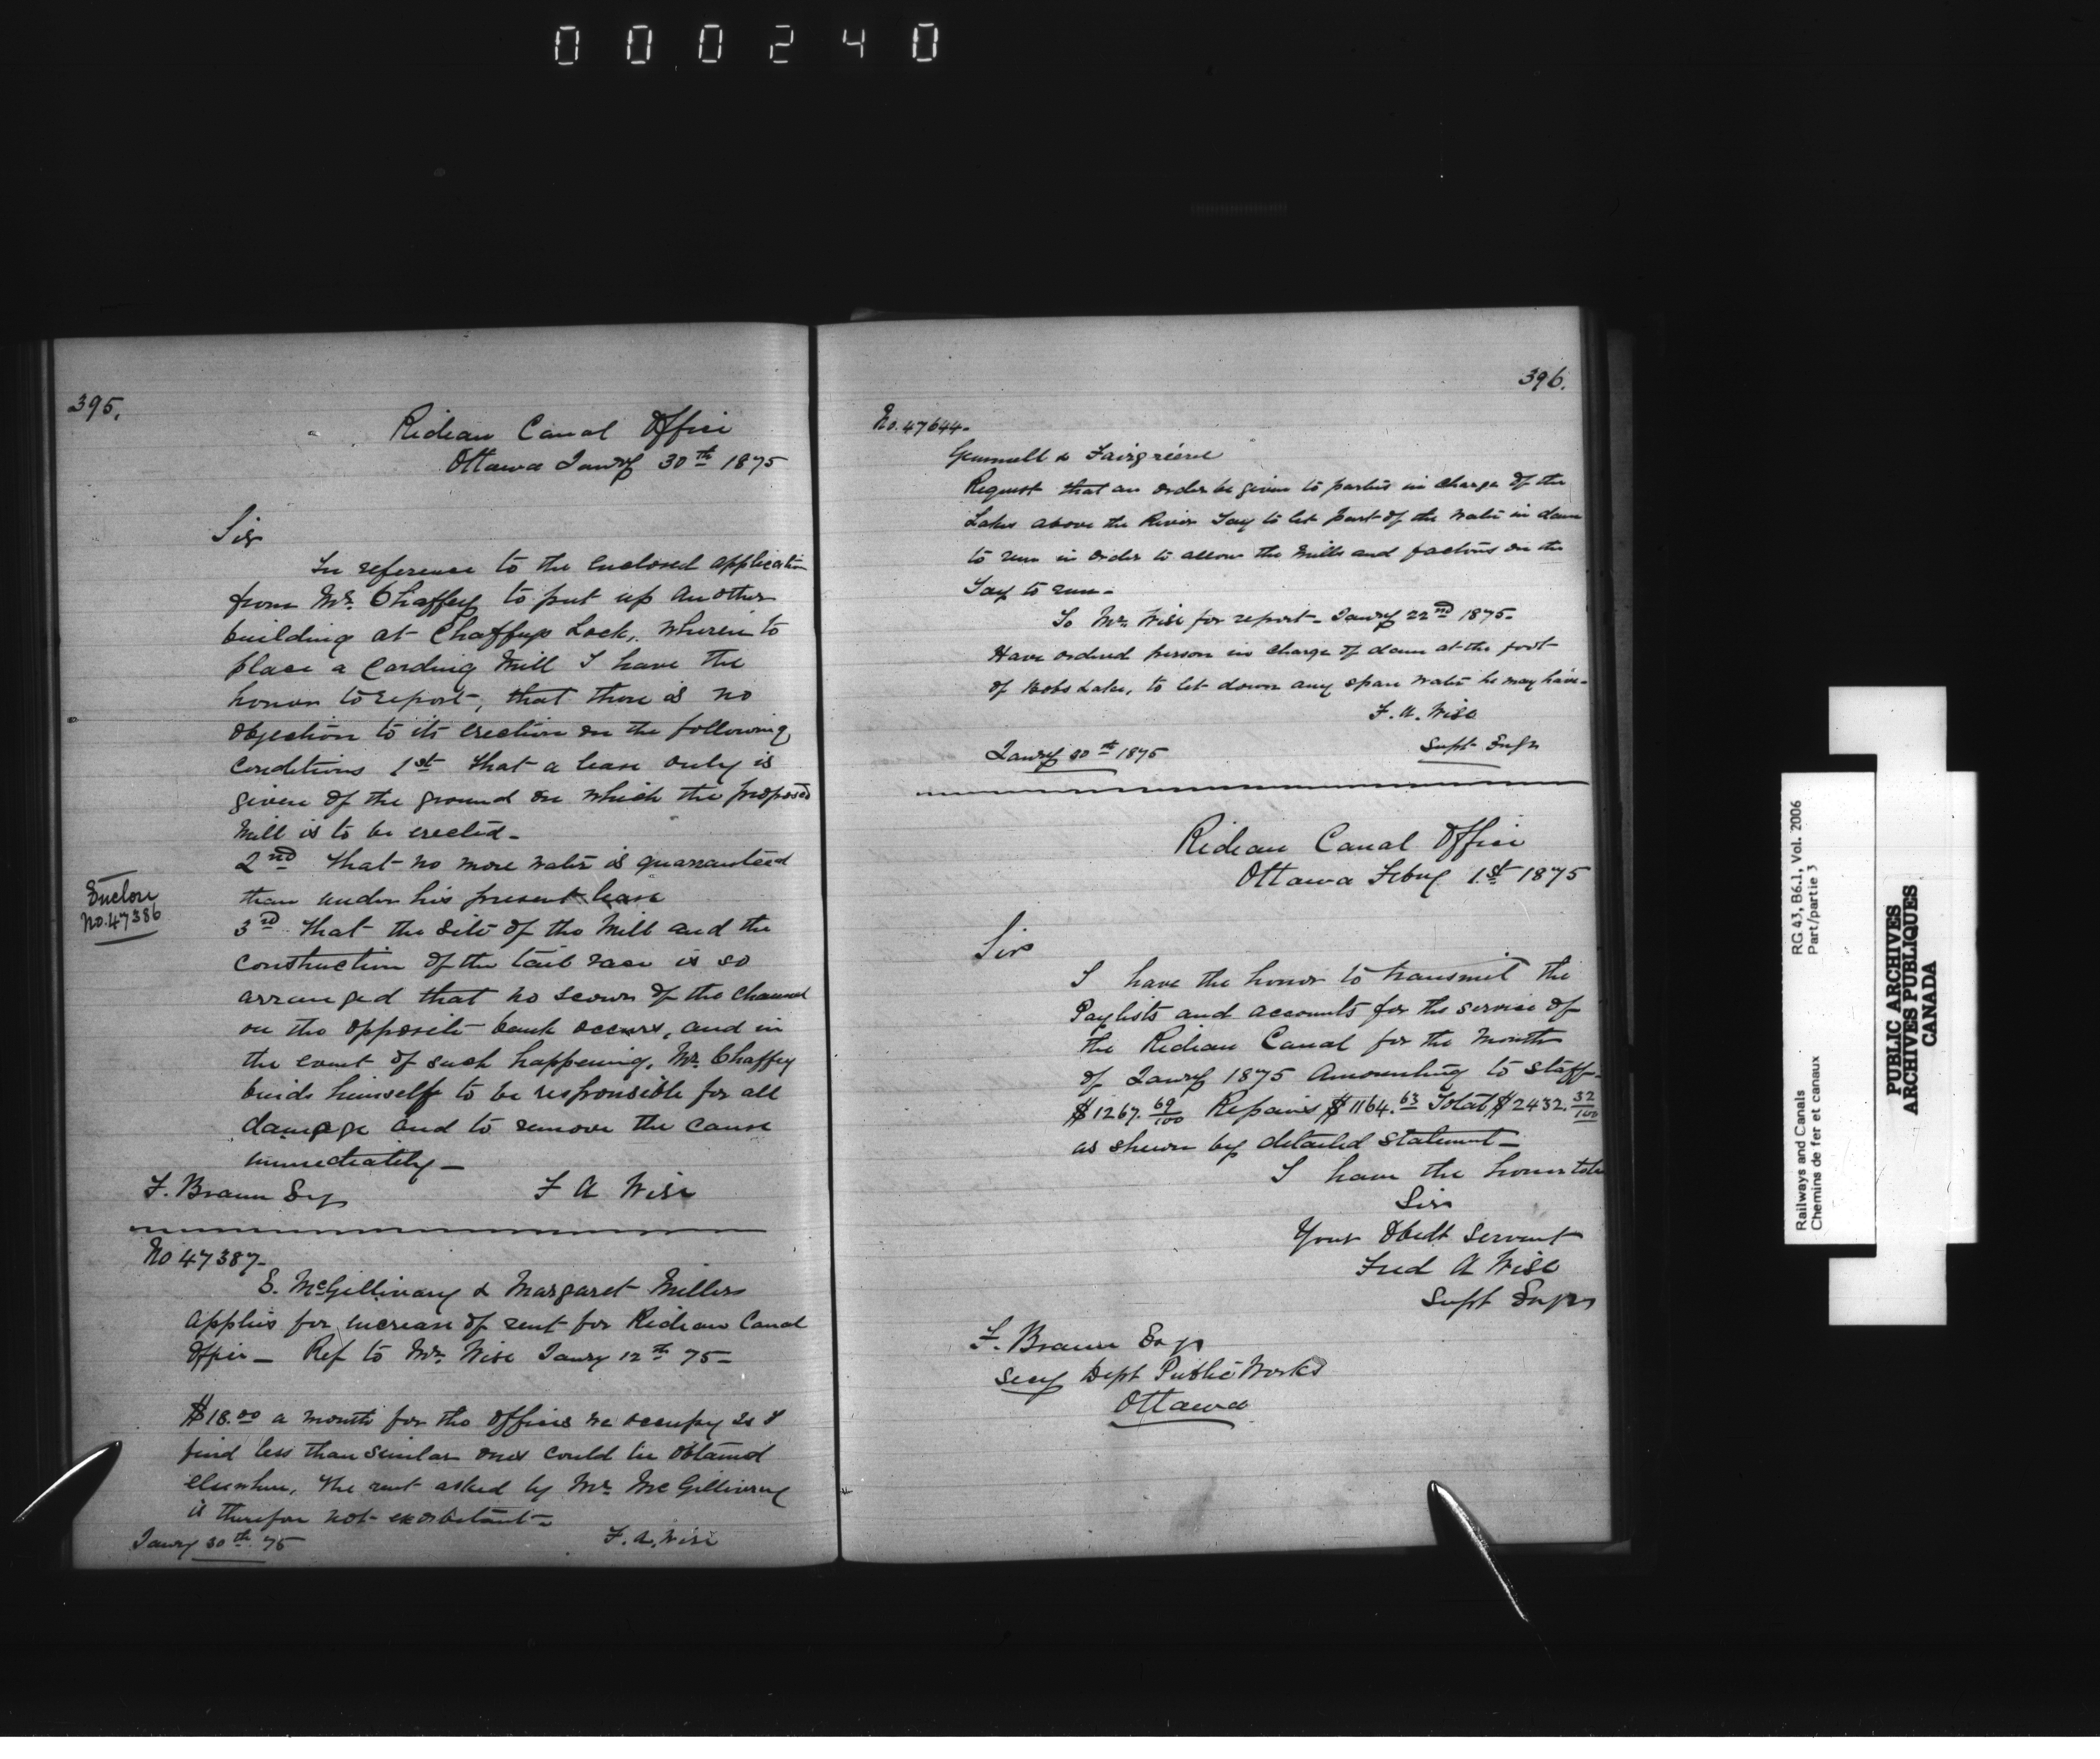 000240
395.
Rideau Canal Office
Ottawa Jany 30th 1875
Sir
In reference to the enclosed application
from Mr. Chaffey to put up another
building at Chaffeys Lock, wherein to
place a Carding Mill I have the
honor to report, that there is no
objection to its erection on the following
conditions 1st that a lease only is
given of the ground on which the proposed
Mill is to be erected-
2nd That no more water is guarranteed
than under his present lease
3rd That the site of the Mill and the
construction of the tail race is so
arranged that no scour of the channel
on the opposite bank occurs, and in
the event of such happening, Mr. Chaffey
binds himself to be responsible for all
damage and to remove the cause
immediately-
Enclose
No. 47386
F. Braun Esq
F A Wise
No 47387-
E. McGillivary & Margaret Millers
applies for increase of rent for Rideau Canal
Office - Ref to Mr. Wise Jany 12th 75-
$18.00 a month for the offices we occupy is I
find less than similar ones could be obtained
elsewhere, the rent asked by Mr. McGillivray
is therefore not exorbitant-
Jany 30th 75
F. A. Wise
396.
No. 47644-
Gemmell & Fairgrieve
Request that an order be given to parties in charge of the
Lakes above the River Tay to let part of the water in dam
to run in order to allow the Mills and factories on the
Tay to run-
To Mr. Wise for report- Jany 22nd 1875-
Have ordered person in charge of dam at the foot
of Bobs Lake, to let down any spare water he may have-
F. A. Wise
Supt Engr
Jany 30th 1875
Rideau Canal Office
Ottawa Feby 1st 1875
Sir
I have the honor to transmit the
Paylists and accounts for the service of
the Rideau Canal for the month
of Jany 1875 Amounting to Staff-
$1267. 69/100 Repairs $1164.63 Total $2432. 32/100
as shewn by detailed statement-
I have the honor to be
Sir
Your Obedt Servant
Fred A Wise
Supt Engr
F. Braun Esq
Secy Dept Public Works
Ottawa
Railways and Canals
Chemins de fer et canaux
RG 43, B6.1, Vol. 2006
Part/partie 3
PUBLIC ARCHIVES
ARCHIVES PUBLIQUES
CANADA